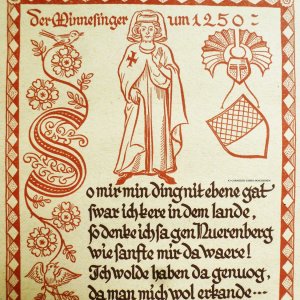 Der Minnesinger um 1250:
So mir min ding nit ebene gat
swar ich kere in dem lande,
so denke ich sa gen Nuerenberg
wie sanfte mir da waere!
Ich wolde haben da genuog,
da man mich wol erkande...